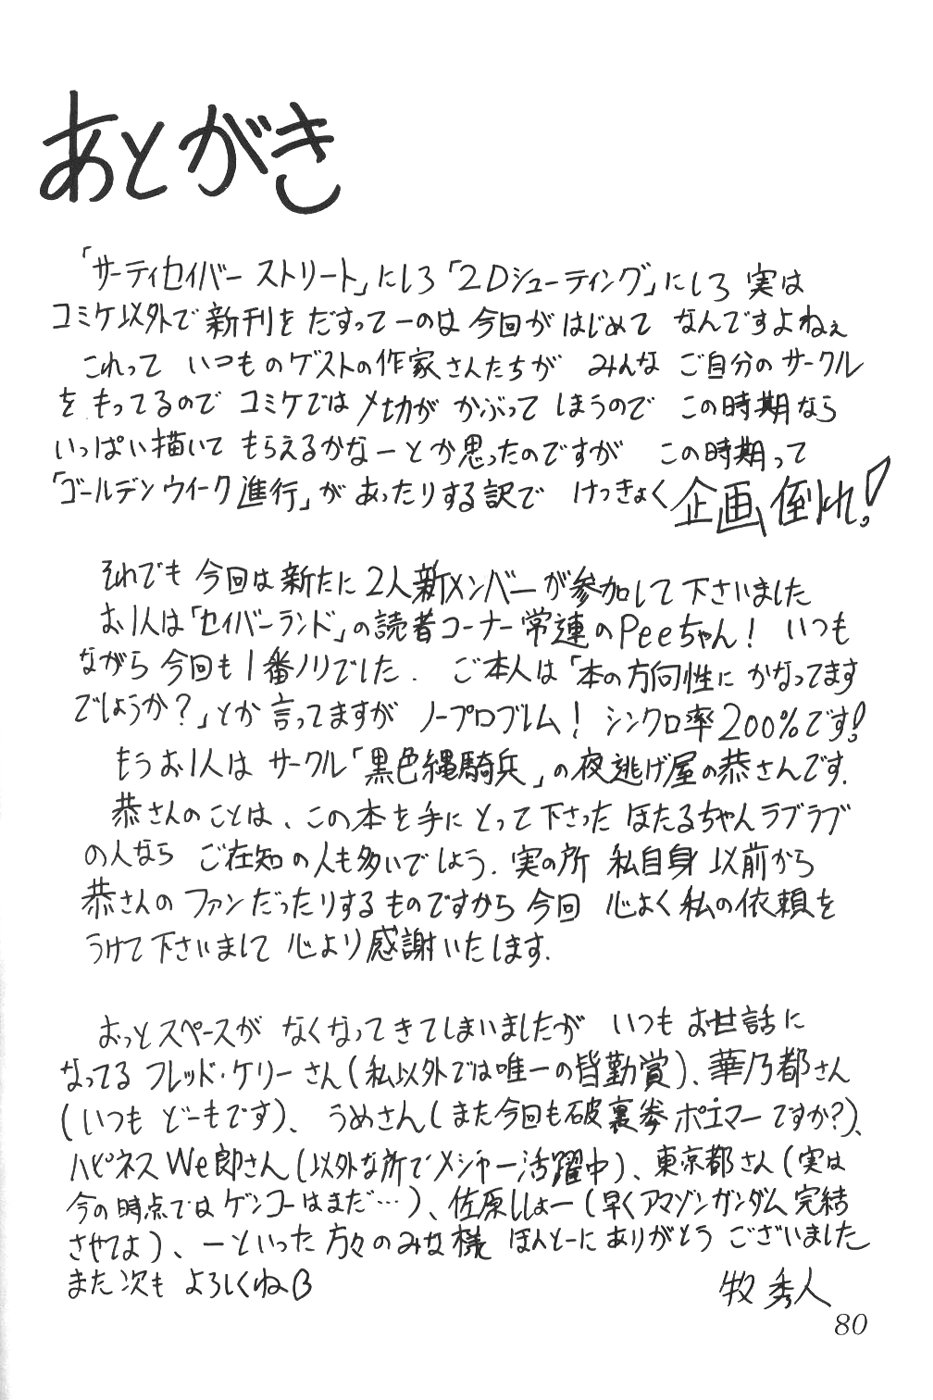 あとがき
「サーティセイバー ストリート」にしろ「2Dシューティング」にしろ 実は
コミケ以外で新刊をだすってーのは今回がはじめて なんですよねぇ
これって いつものゲストの作家さんたちが みんな ご自分のサークル
をもってるので コミケでは〆切が かぶって しまうので この時期なら
いっぱい描いて もらえるかなーとか思ったのですが この時期って
「ゴールデンウイーク進行」があったりする訳で けっきょく企画倒れ!
それでも 今回は新たに2人新メンバーが参加して下さいました
お1人は「セイバーランド」の読者コーナー常連のPeeちゃん! いつも
ながら 今回も1番ノリでした. ご本人は「本の方向性に かなってます
でしょうか?」とか言ってますが ノープロブレム! シンクロ率200%です!
もうお1人は サークル「黒色縄騎兵」の夜逃げ屋の恭さんです.
恭さんのことは、この本を手にとって下さった ほたるちゃんラブラブ
の人なら ご在知の人も多いでしょう. 実の所 私自身 以前から
恭さんの ファンだったりするものですから 今回 心よく私の依頼を
うけて下さいまして 心より感謝いたします.
おっとスペースが なくなってきてしまいましたが いつも お世話に
なってる フレッド・ケリーさん(私以外では唯一の皆勤賞)、華乃都さん
(いつも どーもです)、うめさん(また今回も破裏拳ポエマーですか?)、
ハピネスWe郎さん(以外な所でメジャー活躍中)、東京都さん(実は
今の時点では ゲンコーはまだ…)、佐原ししょー(早くアマゾンガンダム完結
させてよ)、ーといった 方々のみな様 ほんとーに ありがとう ございました
また次も よろしくね
牧 秀人
80